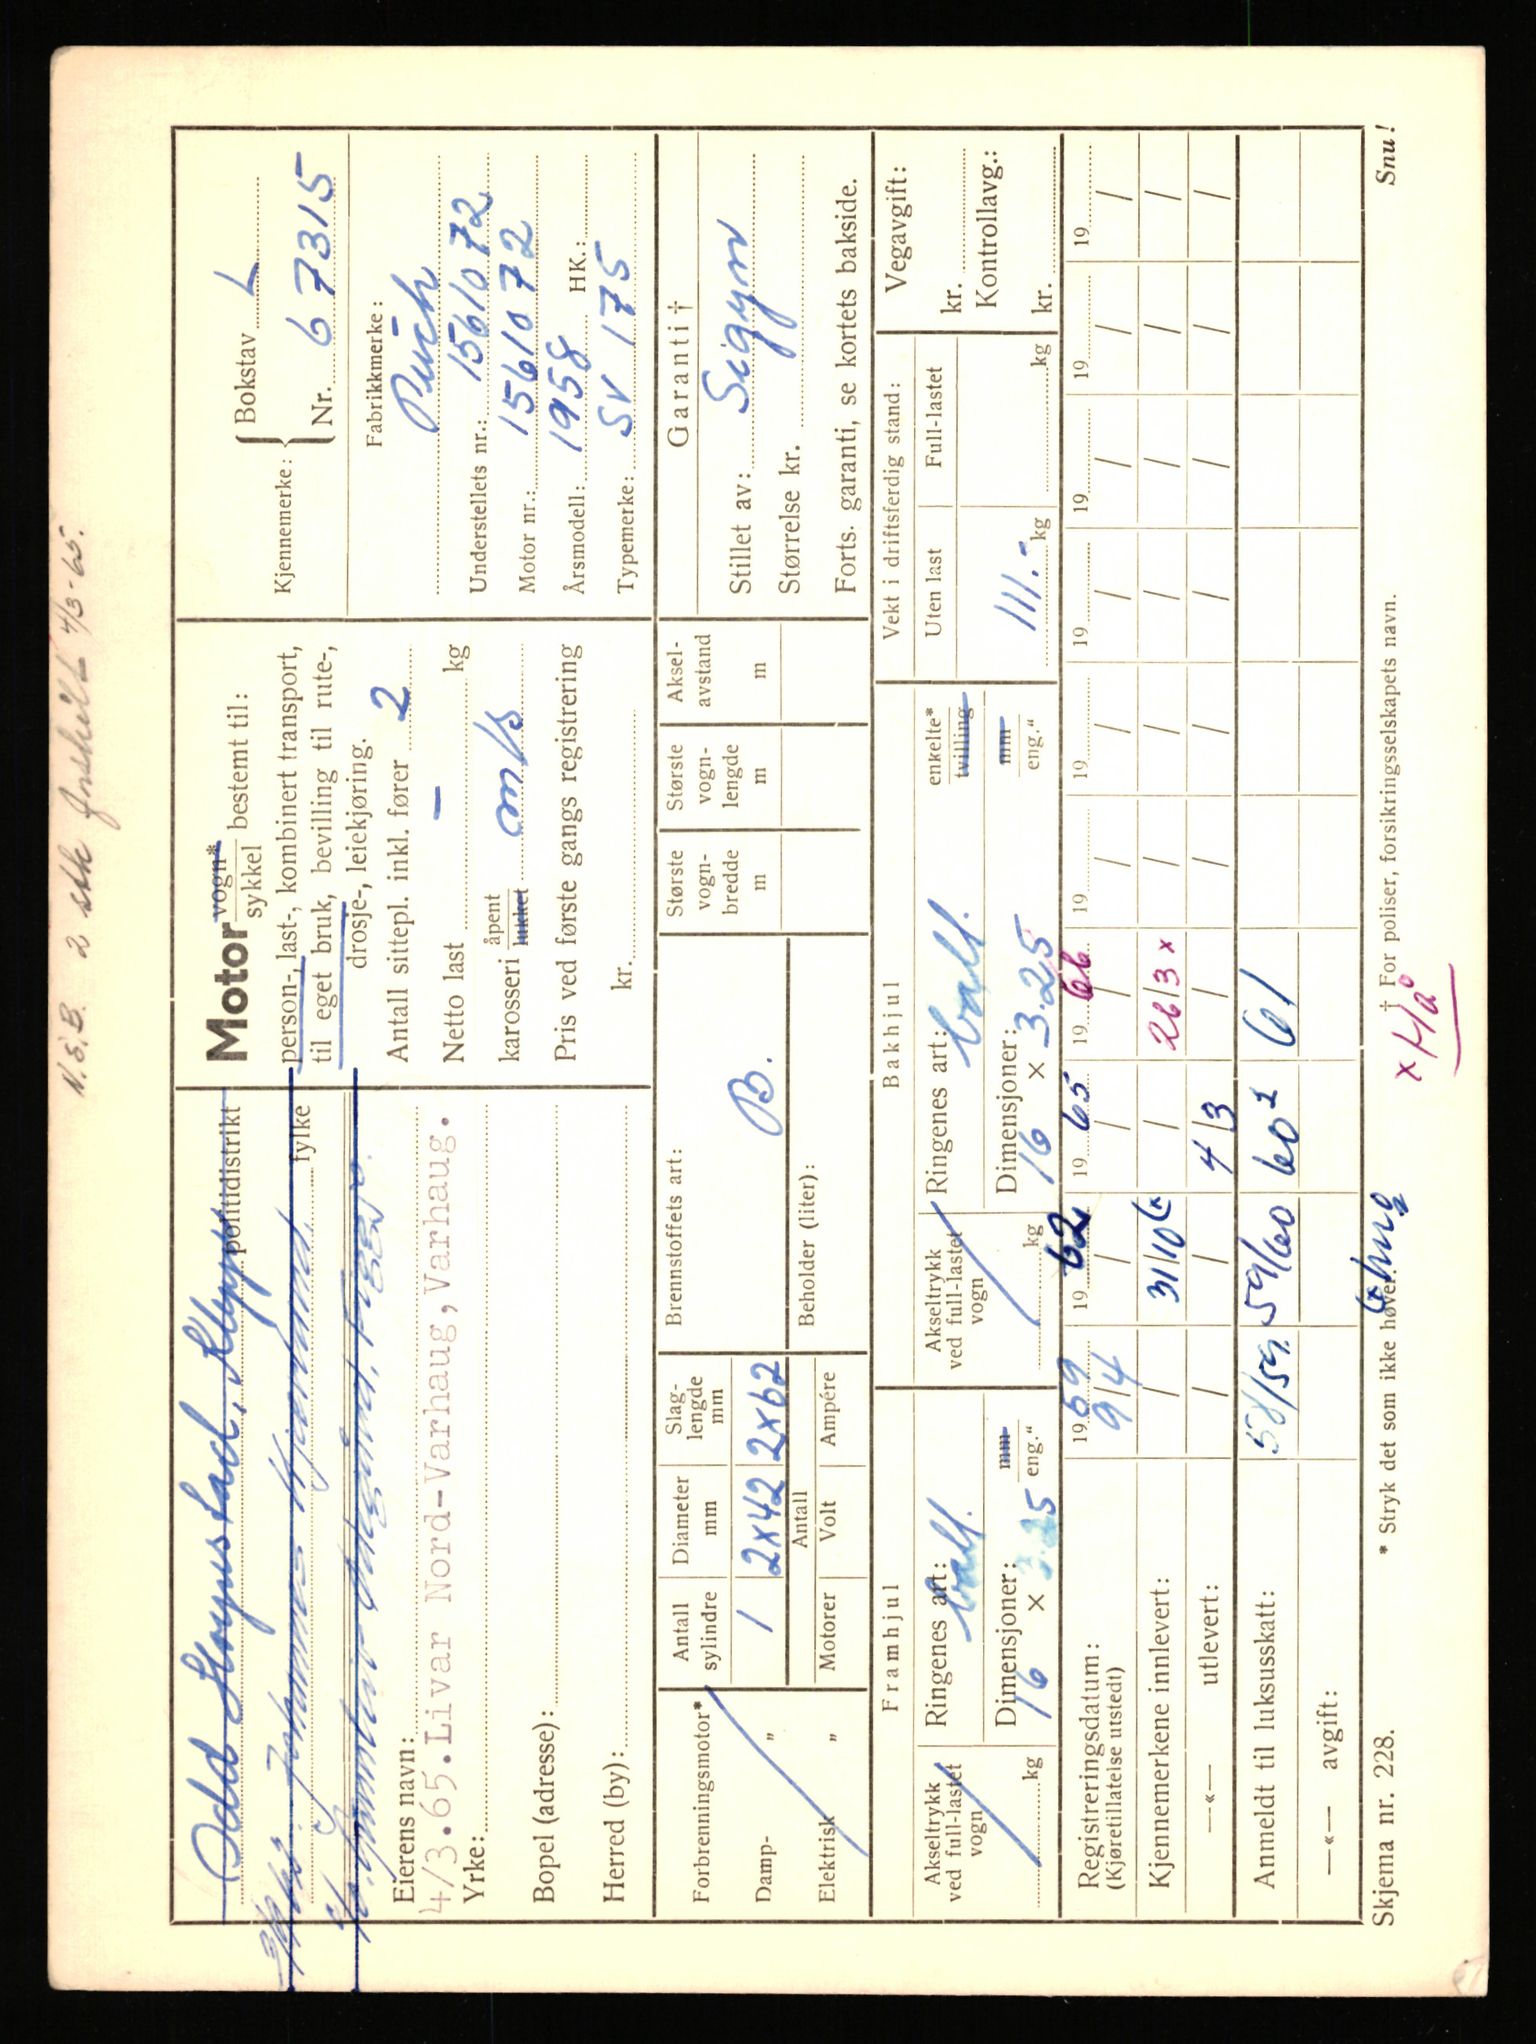 N.B. 2 stk innhilt 4/3-65.
Odd Høyustad, Klepp politidistrikt
Johannes fylke
Eierens navn:
4/3.65. Livar Nord-Varhaug, Varhaug.
Yrke:
Bopel (adresse):
Herred (by):
Motor vogn* sykkel bestemt til:
person-, last-, kombinert transport,
til eget bruk, bevilling til rute-,
drosje-, leiekjøring.
Antall sittepl. inkl. fører 2
Netto last – kg
karosseri åpent lukket m/s
Pris ved første gangs registrering
kr.
Kjennemerke: Bokstav L
Nr. 67315
Fabrikkmerke:
Puch
Understellets nr.: 1561072
Motor nr.: 1561072
Årsmodell: 1958 HK.:
Typemerke: SV 175
Forbrenningsmotor*
Damp- „
Elektrisk „
Antall sylindre
1
Diameter mm
2x42
Slag-lengde mm
2x62
Motorer
Antall
Volt
Ampére
Brennstoffets art:
B.
Beholder (liter):
Største vogn-bredde m
Største vogn-lengde m
Aksel-avstand m
Garanti †
Stillet av: Sigyn
Størrelse kr.
Forts. garanti, se kortets bakside.
Framhjul
Akseltrykk ved full-lastet vogn
kg
Ringenes art: ball.
Dimensjoner: mm
16 × 3.25 eng."
Bakhjul
Akseltrykk ved full-lastet vogn
kg
Ringenes art: ball. enkelte* tvilling
Dimensjoner: mm
16 × 3.25 eng."
Vekt i driftsferdig stand:
Uten last
Full-lastet
111.- kg
kg
Vegavgift:
kr.
Kontrollavg.:
kr.
Registreringsdatum: 1959 1962 1965 1966 19 19 19 19 19 19
(Kjøretillatelse utstedt) 9/4 / / / / / / / / /
Kjennemerkene innlevert: / 31/10 / 26/3 x / / / / / /
—«— utlevert: / / 4/3 / / / / / / /
Anmeldt til luksusskatt: 58/59. 59/60 60 61
—«— avgift:
Skjema nr. 228.
* Stryk det som ikke høver.
† For poliser, forsikringsselskapets navn.
Snu!
x Hå